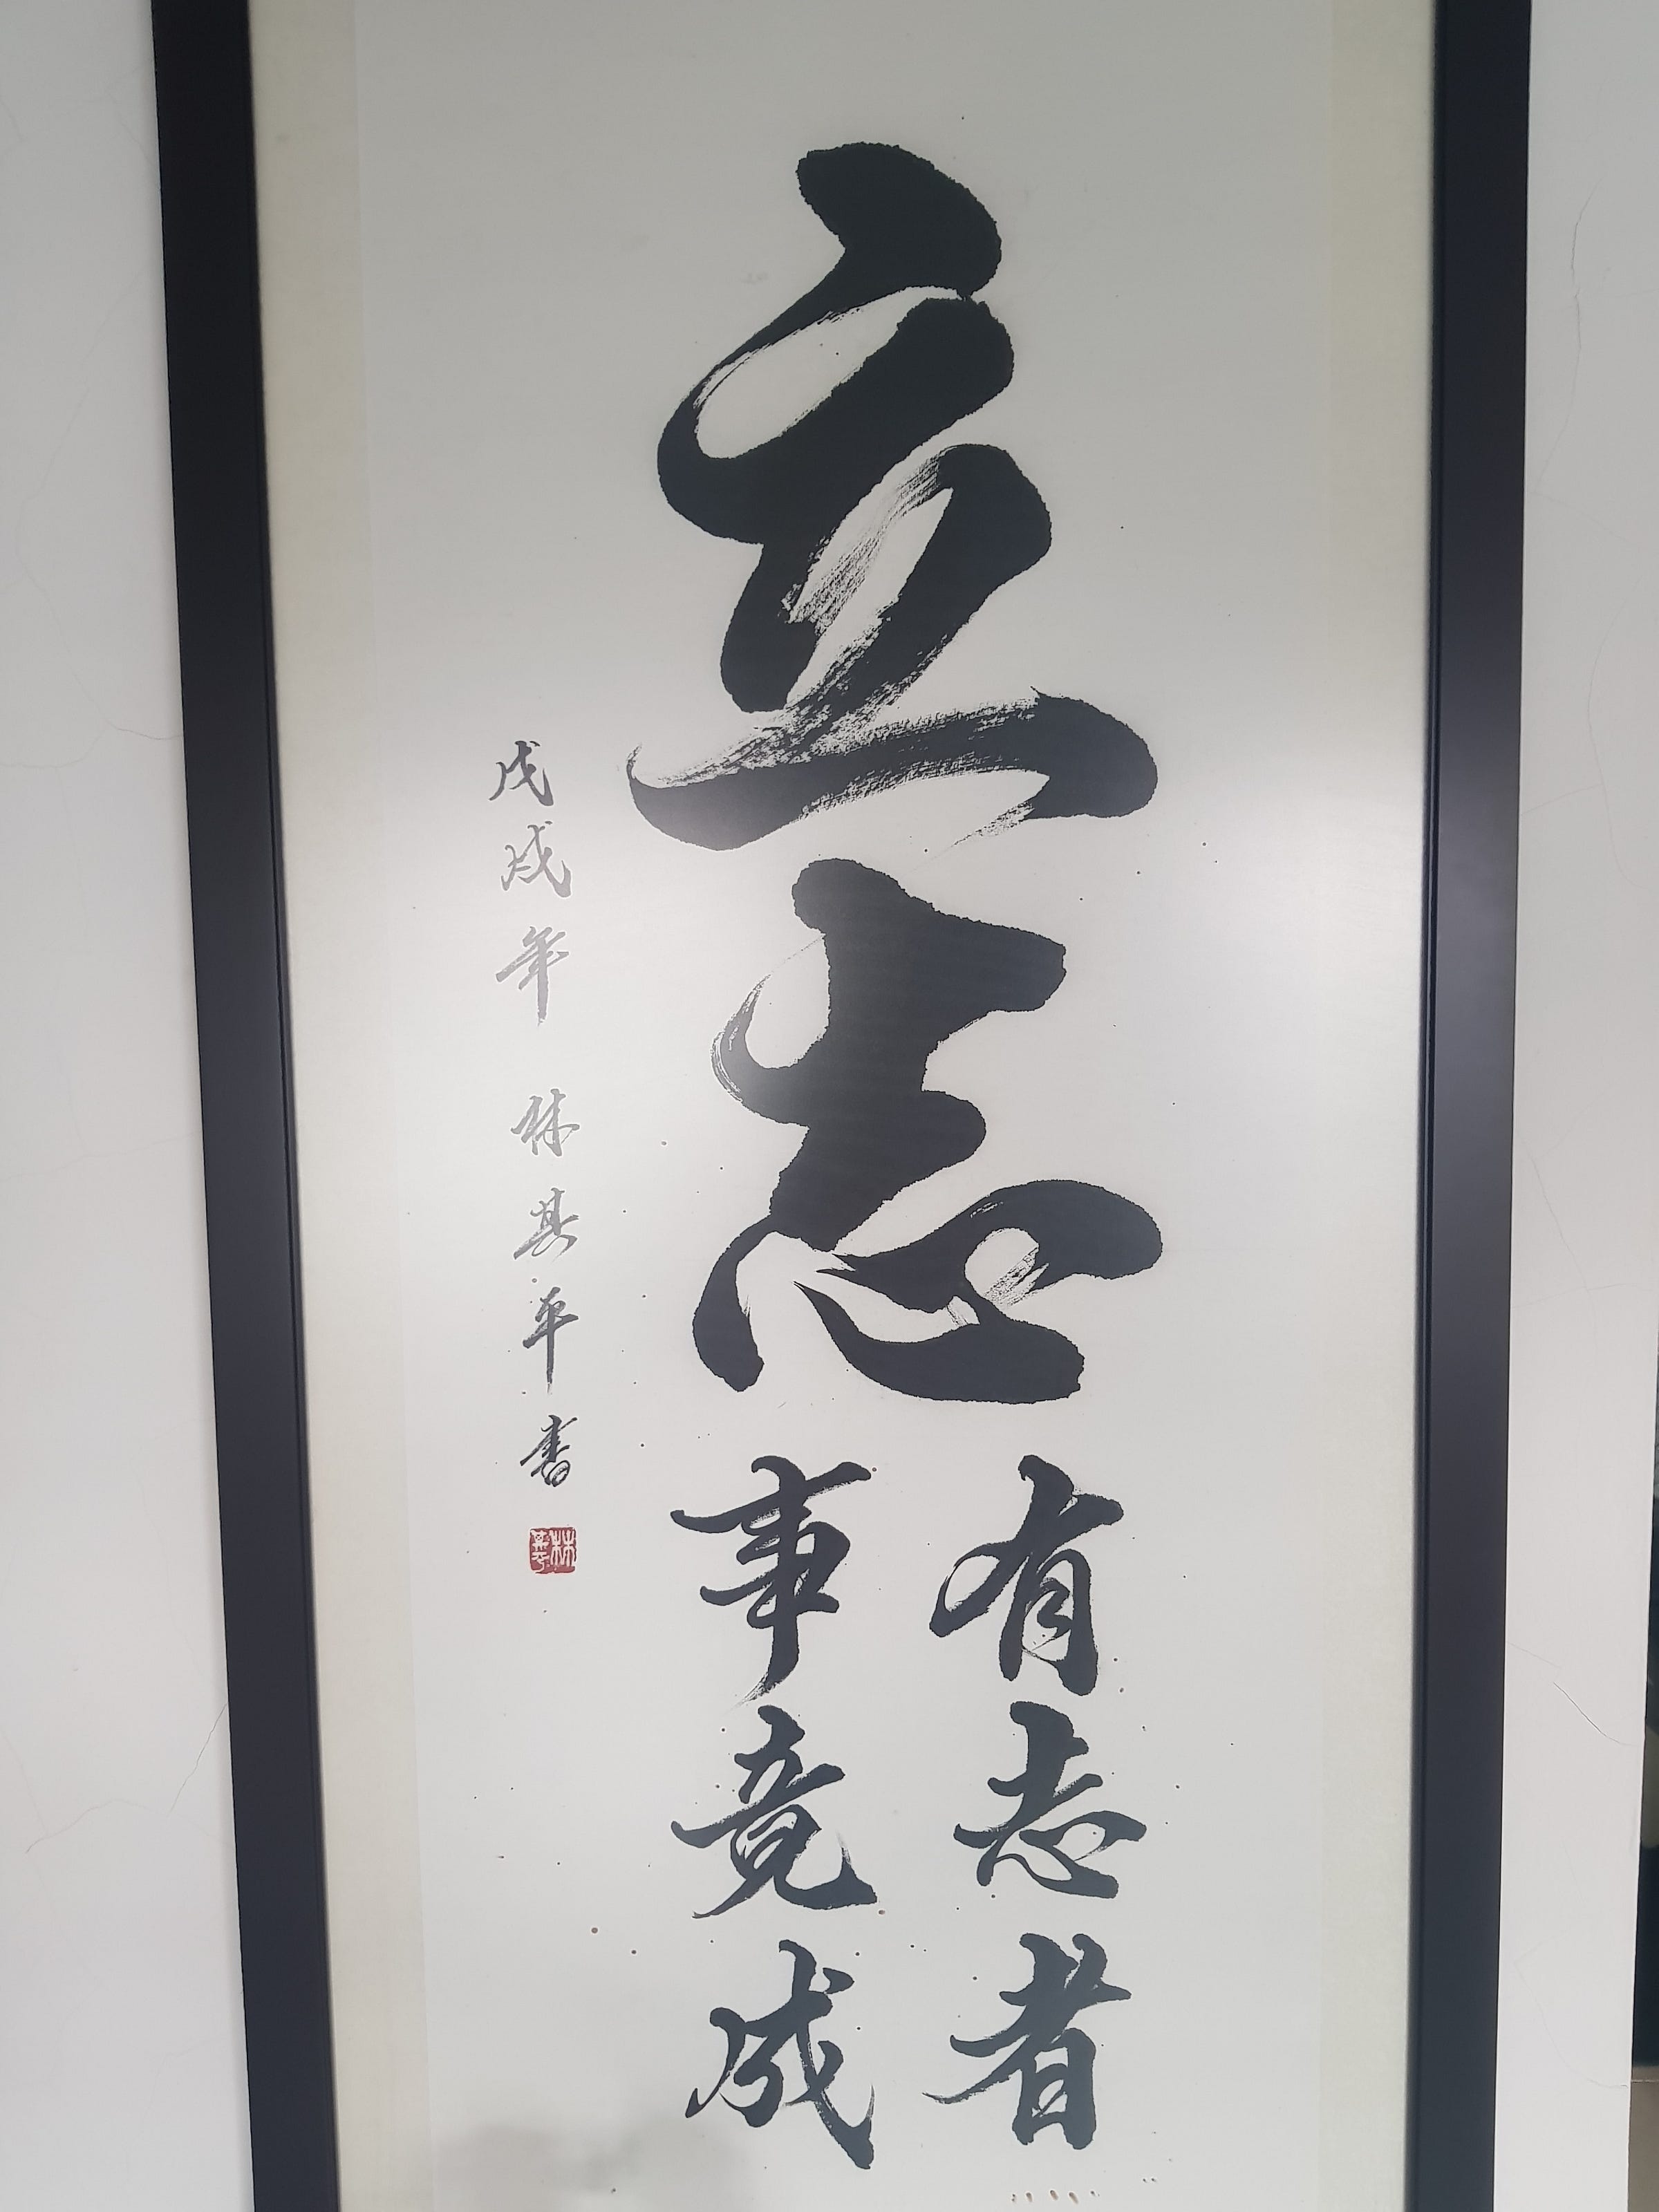 立志
有志者
事竟成
戊戌年 林其平书